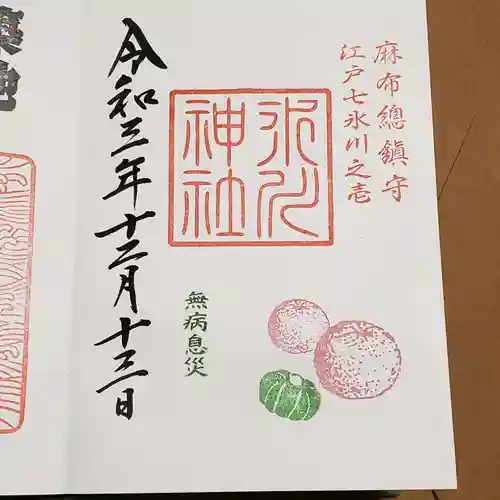 麻布總鎮守
江戸七氷川之壱
氷川
神社
無病息災
令和三年十二月十三日
築地